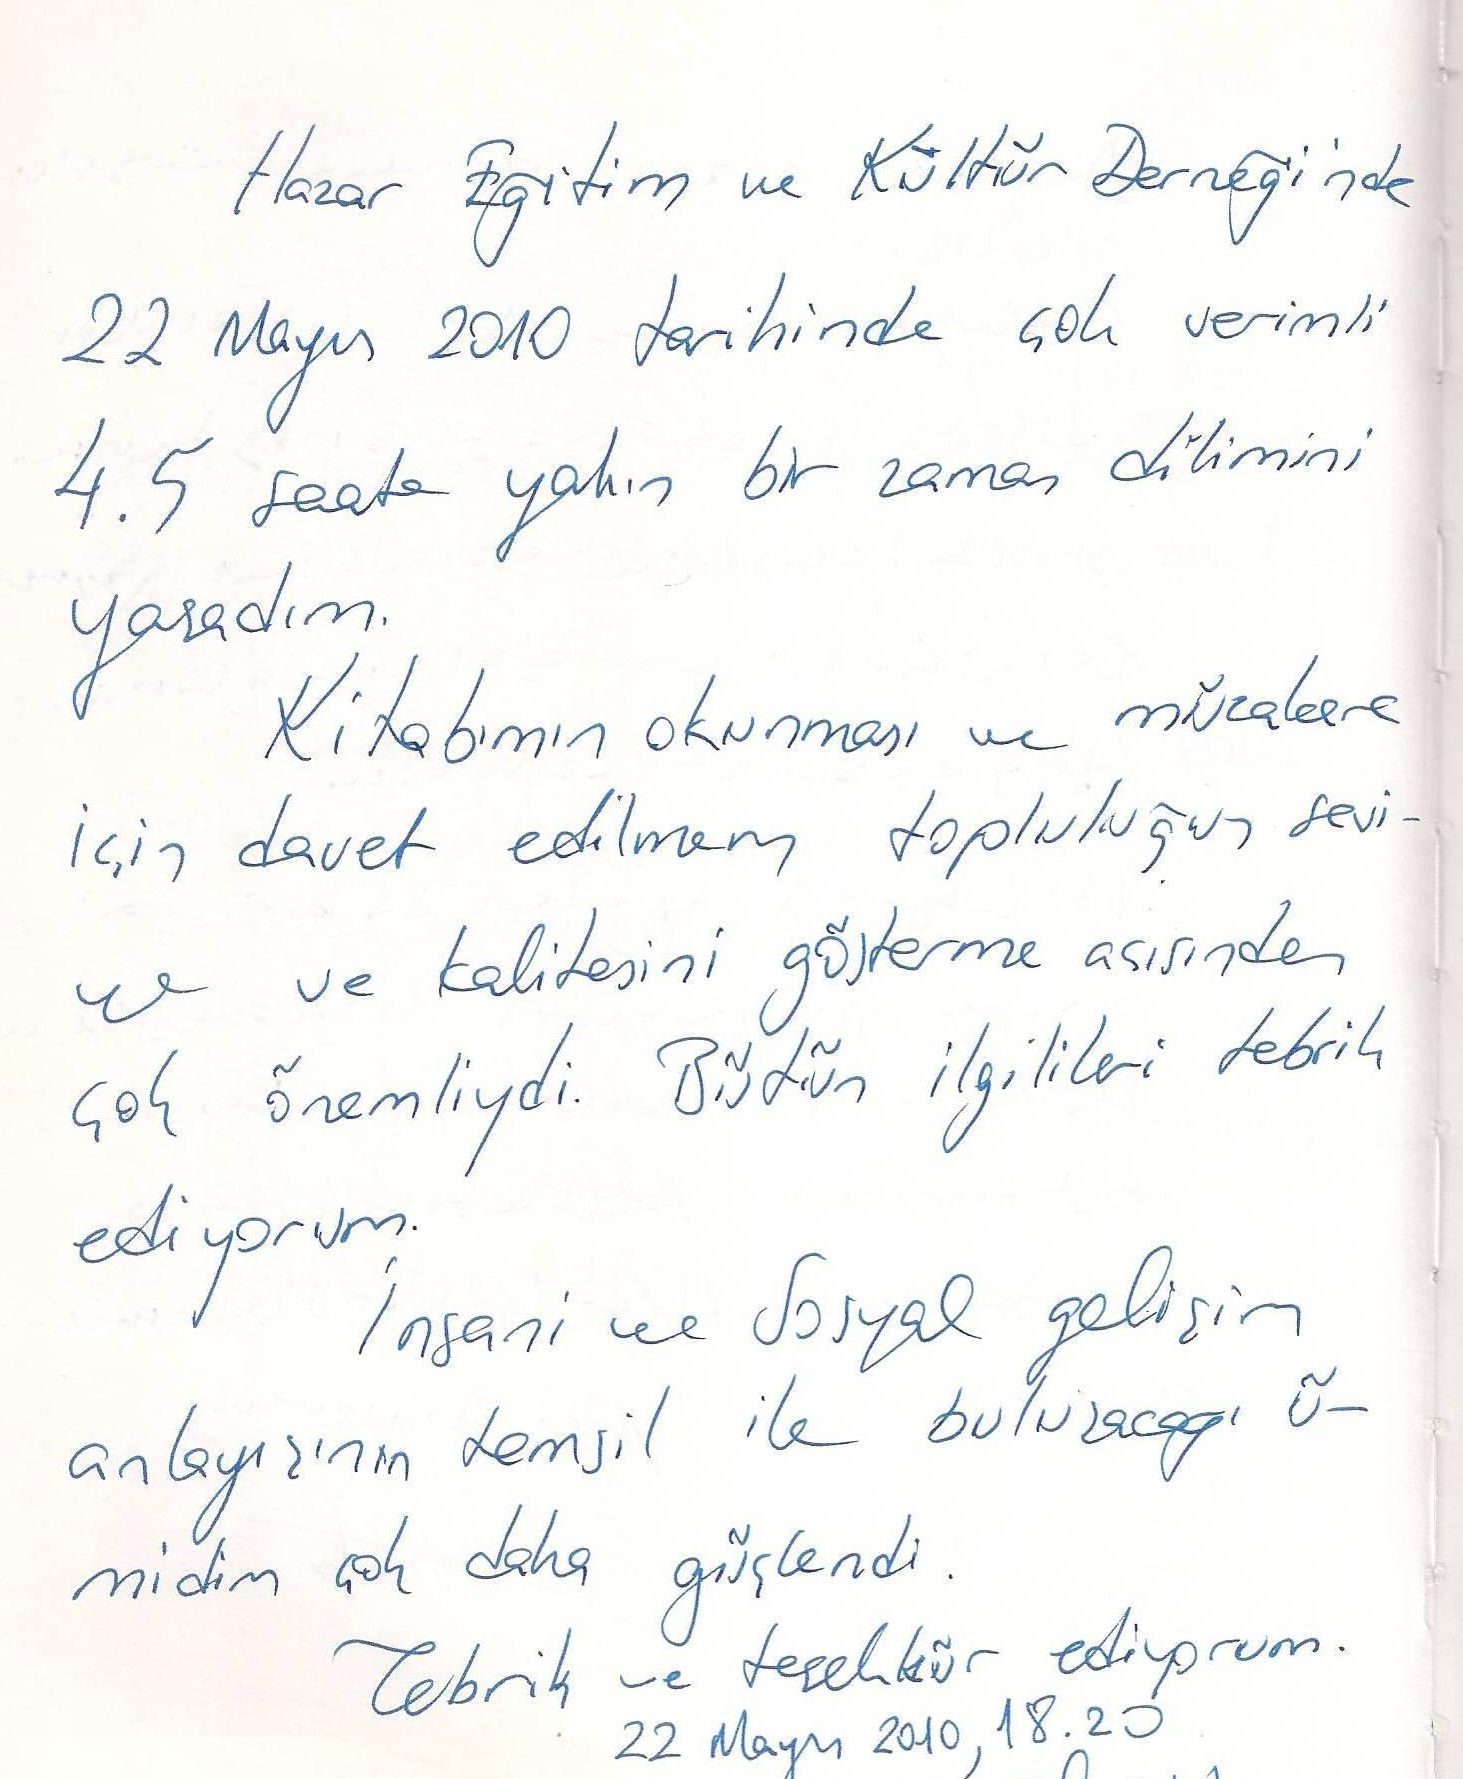 Hazar Eğitim ve Kültür Derneği'nde
22 Mayıs 2010 tarihinde çok verimli
4.5 saate yakın bir zaman dilimini
yaşadım.
Kitabımın okunması ve müzakere
için davet edilmem topluluğun sevi-
ye ve kalitesini gösterme açısından
çok önemliydi. Bütün ilgilileri tebrik
ediyorum.
İnsani ve Sosyal gelişim
anlayışının temsil ile buluşacağı ü-
midim çok daha güçlendi.
Tebrik ve teşekkür ediyorum.
22 Mayıs 2010, 18.20